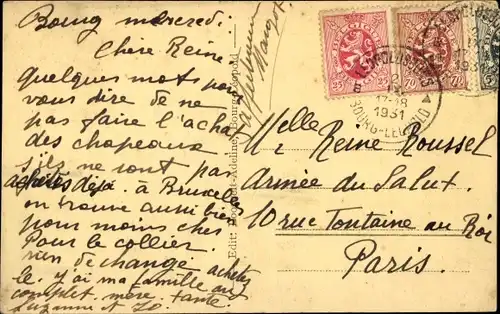 Bourg mercredi.
Chère Reine
Quelques mots pour
vous dire de ne
pas faire l'achat
des chapeaux
s'ils ne sont pas
achetés déjà. à Bruxelles
on trouve aussi bien
pour moins cher
Pour le collier
rien de changé achetez
le. j'ai ma famille au
complet. mère. tante.
Suzanne et
Edit: Bourg-Léopold
LEOPOLDSBURG
2
IX
17-18
1931
BOURG-LEOPOLD
25 25
70 70
Melle Reine Roussel
Armée du Salut.
10 rue Fontaine au Roi
Paris.